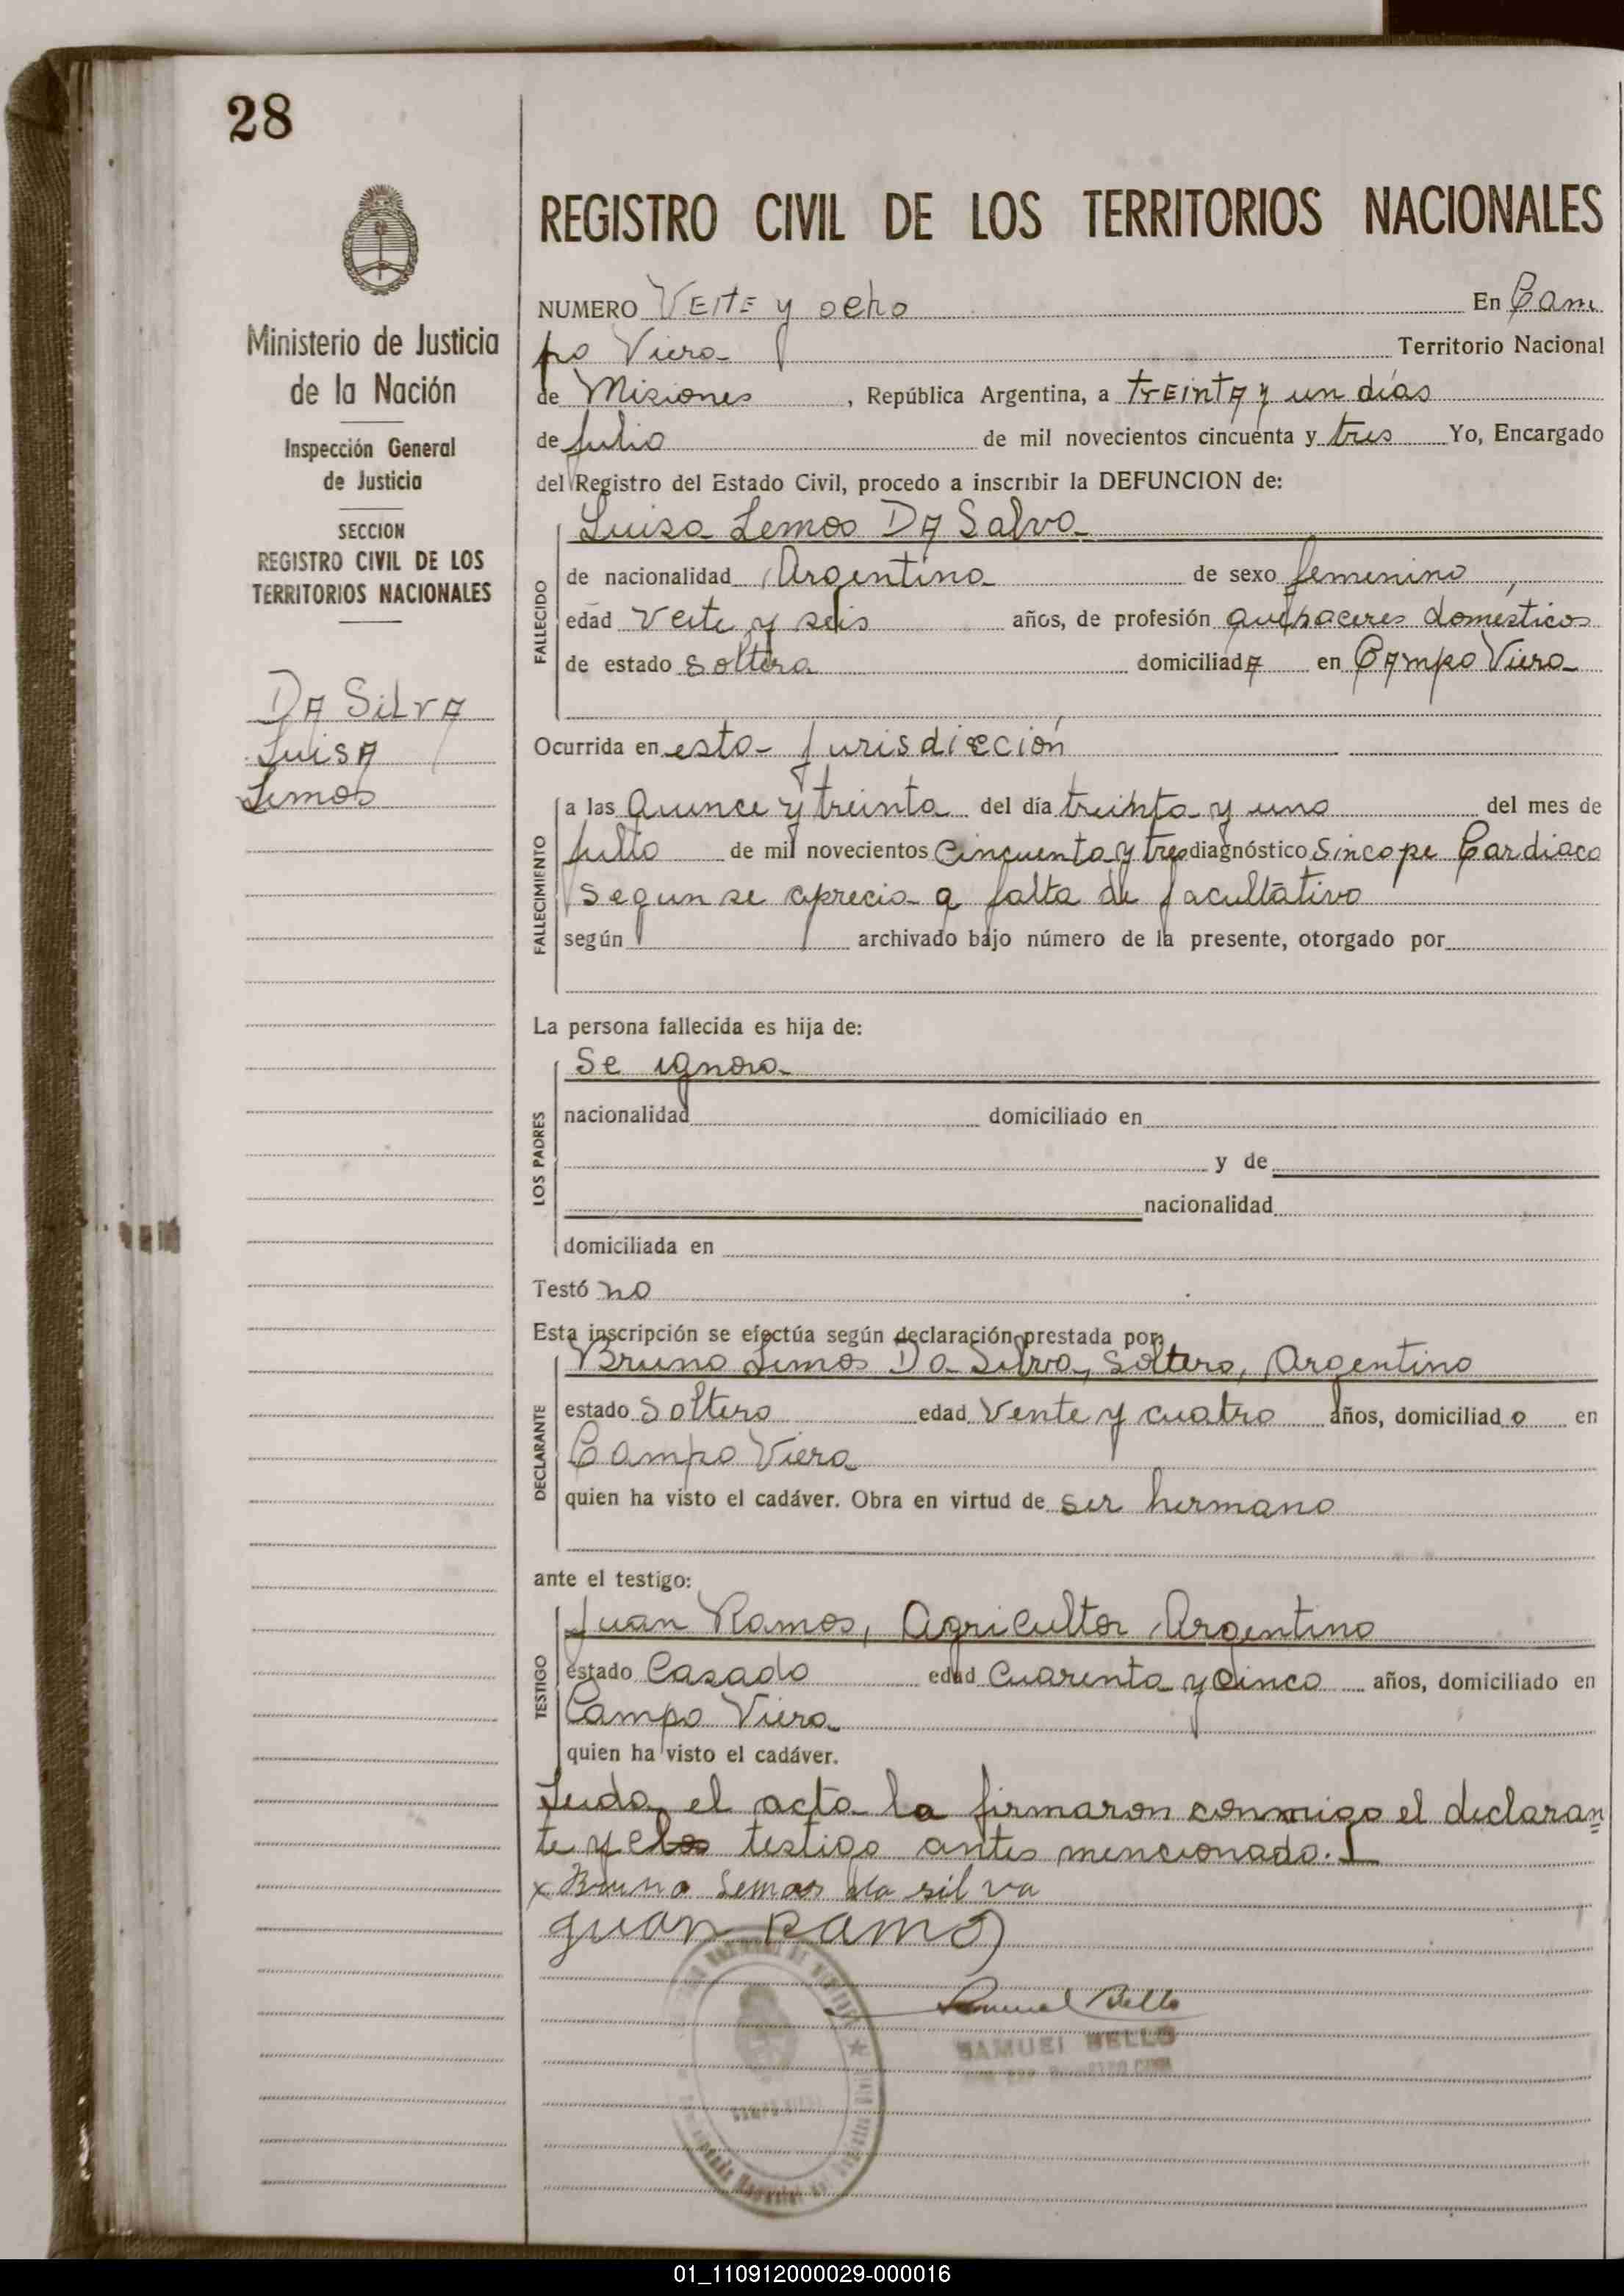 28
Ministerio de Justicia
de la Nación
Inspección General
de Justicia
SECCION
REGISTRO CIVIL DE LOS
TERRITORIOS NACIONALES
DA SilvA
LuisA
Lemos
REGISTRO CIVIL DE LOS TERRITORIOS NACIONALES
NUMERO VEITE y ocho En Cam
po Viera Territorio Nacional
de Misiones, República Argentina, a trEintA y un días
de julio de mil novecientos cincuenta y tres Yo, Encargado
del Registro del Estado Civil, procedo a inscribir la DEFUNCION de:
Luisa Lemos DA Salva
FALLECIDO
de nacionalidad Argentina de sexo femenino,
edad veite y seis años, de profesión quehaceres domésticos
de estado soltera domiciliadA en CAmpo Viera
Ocurrida en esta Jurisdicción
FALLECIMIENTO
a las Quince y treinta del día treinta y uno del mes de
julio de mil novecientos Cincuenta y tres diagnóstico Sincope Cardiaco
segun se aprecia a falta de facultativo
según archivado bajo número de la presente, otorgado por
La persona fallecida es hija de:
LOS PADRES
Se ignora
nacionalidad domiciliado en
y de
nacionalidad
domiciliada en
Testó no
Esta inscripción se efectúa según declaración prestada por:
DECLARANTE
Bruno Lemos Da Silva, Soltero, Argentino
estado Soltero edad Vente y cuatro años, domiciliado en
Campo Viera
quien ha visto el cadáver. Obra en virtud de ser hermano
ante el testigo:
TESTIGO
Juan Ramos, Agricultor Argentino
estado Casado edad Cuarenta y cinco años, domiciliado en
Campo Viera
quien ha visto el cadáver.
Leida el acta la firmaron conmigo el declaran=
te y el testigo antes mencionado.
x Bruno Lemos da silva
Juan Ramos
Samuel Bello
SAMUEL BELLO
01_110912000029-000016